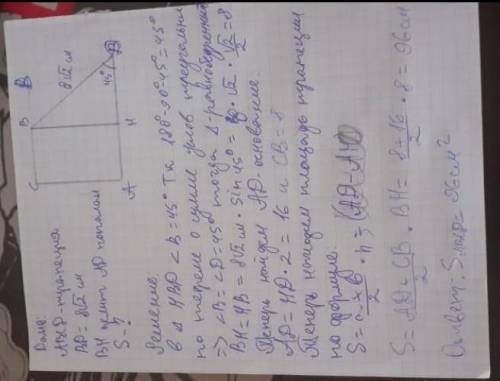 Дано:
ABCD-трапеция
BD = 8√2 см
BH делит AD пополам
S - ?
C
B
B
8√2 см
45°
A
H
Решение:
В Δ HBD ∠B = 45° Т.к 180°-90°-45° = 45°
по теореме о сумме углов треугольника
⇒ ∠B = ∠D = 45° тогда Δ-равнобедренный
BH = HB = 8√2 см · sin 45° = 8 · √2 · √2/2 = 8
Теперь найдем AD-основание.
AD = HD · 2 = 16 и CB = 8
Теперь находим площадь трапеции
по формуле:
S = a+b/2 · h =
S = AD + CB/2 · BH = 8+16/2 · 8 = 96 см
Ответ: S = 96 см²